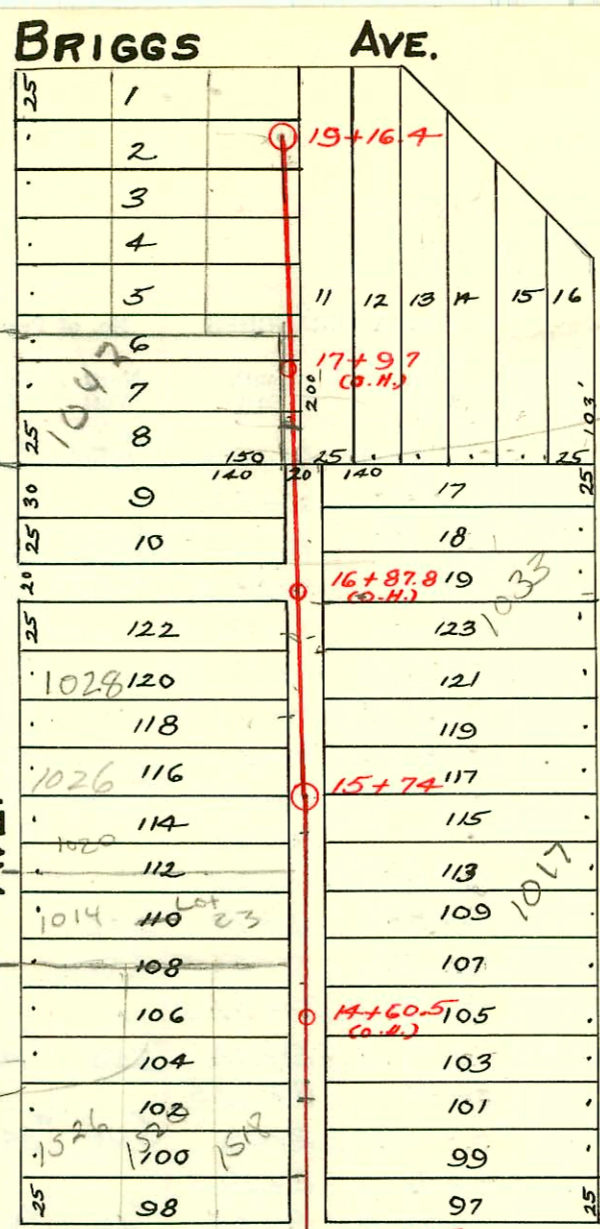 BRIGGS AVE.
25 1
19+16.4
2
3
4
5 11 12 13 14 15 16
6
17+97
(O.H.)
1042
7
200
103'
25 8
150 25 25
140 20 140
30 9 17 25
25 10 18
20
16+87.8 19
(O.H.)
1033
25 122 123
1028 120 121
118 119
1026 116 117
15+74
114 115
1020
112 113
1017
1014 110 Lot 23 109
108 107
106 105
14+60.5
(O.H.)
104 103
102 101
1526 1520 1518
100 99
25 98 97 25